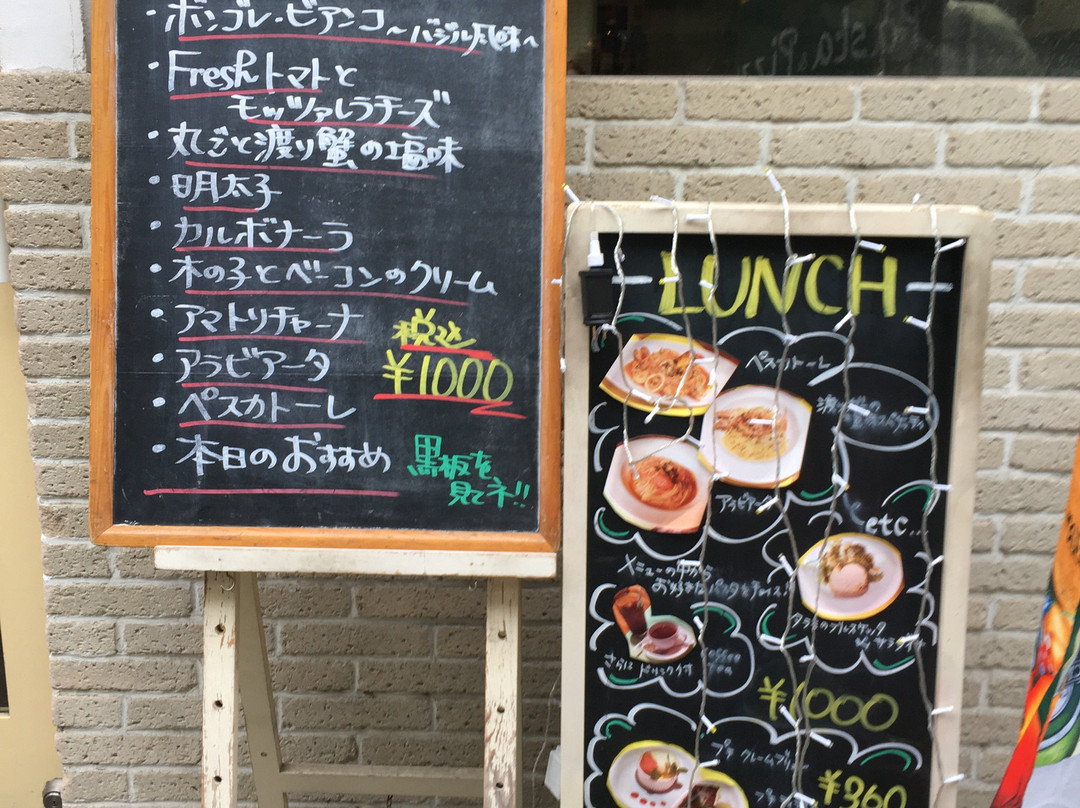 ・ボンゴレ・ビアンコ
～バジル風味～
・Freshトマトと
モッツァレラチーズ
・丸ごと渡り蟹の塩味
・明太子
・カルボナーラ
・木の子とベーコンのクリーム
・アマトリチャーナ
・アラビアータ
・ペスカトーレ
・本日のおすすめ
税込
¥1000
黒板を
見てネ!!
LUNCH
ペスカトーレ
アラビアータ
etc..
メニューの中から
お好きなパスタを
さらに ドリンク付
coffee
tea
¥1000
プチ クレームブリュレ
¥360